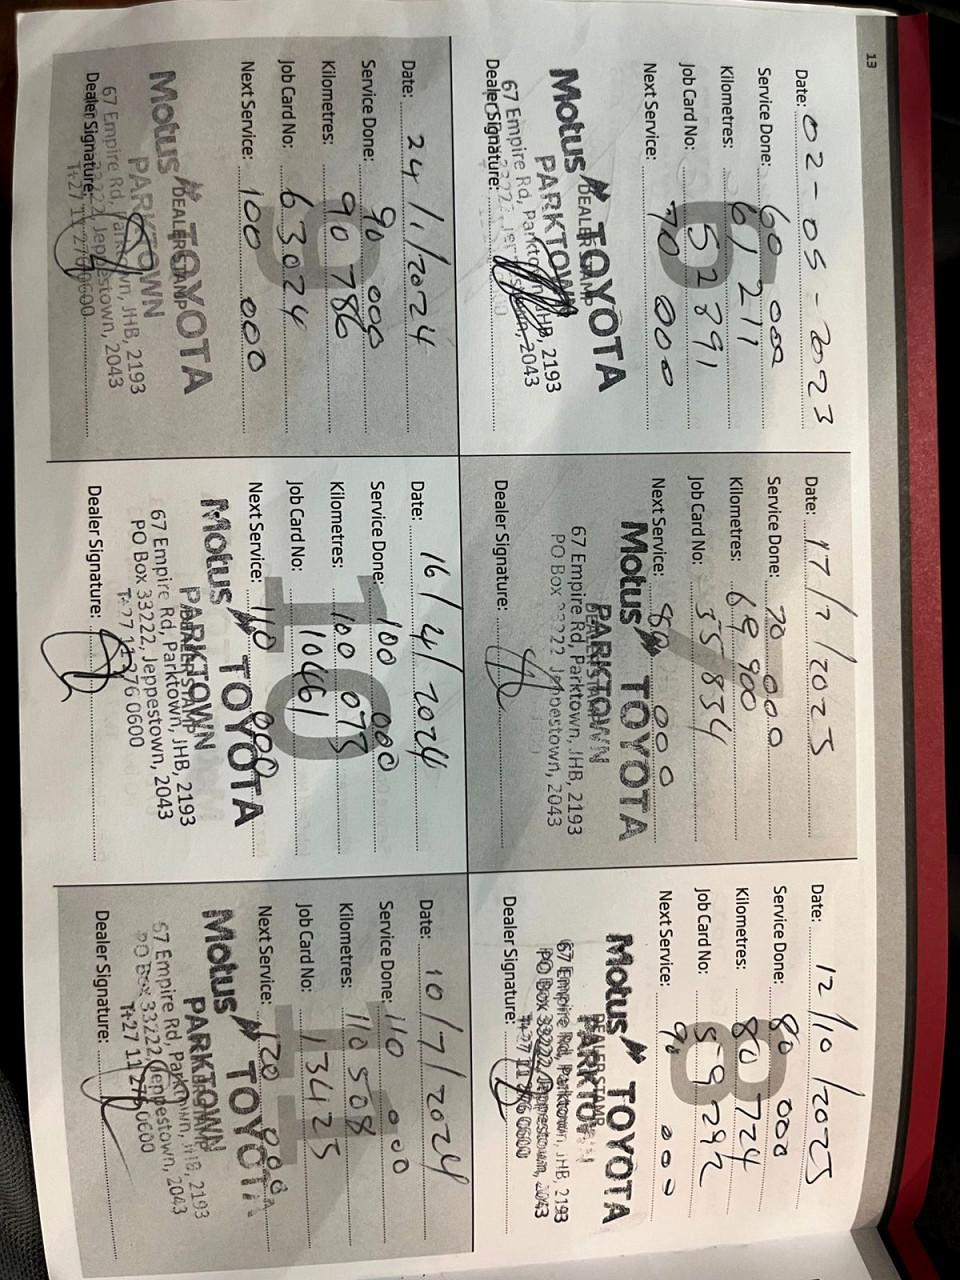 13
Date: 02-05-2023
Service Done: 60 000
Kilometres: 61 211
Job Card No: 52391
Next Service: 70 000
6
Motus TOYOTA
DEALER STAMP
PARKTOWN
67 Empire Rd, Parktown, JHB, 2193
33222, Jeppestown, 2043
Dealer Signature:
Date: 17/7/2023
Service Done: 70 000
Kilometres: 69 900
Job Card No: 55834
Next Service: 80 000
7
Motus TOYOTA
DEALER STAMP
PARKTOWN
67 Empire Rd, Parktown, JHB, 2193
PO Box 33222 Jeppestown, 2043
Dealer Signature:
Date: 12/10/2023
Service Done: 80 000
Kilometres: 80 724
Job Card No: 59292
Next Service: 90 000
8
Motus TOYOTA
DEALER STAMP
PARKTOWN
67 Empire Rd, Parktown, JHB, 2193
PO Box 33222, Jeppestown, 2043
T+27 11 276 0600
Dealer Signature:
Date: 24/1/2024
Service Done: 90 000
Kilometres: 90 786
Job Card No: 63024
Next Service: 100 000
9
Motus TOYOTA
DEALER STAMP
PARKTOWN
67 Empire Rd, Parktown, JHB, 2193
33222, Jeppestown, 2043
T+27 11 276 0600
Dealer Signature:
Date: 16/4/2024
Service Done: 100 000
Kilometres: 100 073
Job Card No: 10461
Next Service: 110 000
10
Motus TOYOTA
DEALER STAMP
PARKTOWN
67 Empire Rd, Parktown, JHB, 2193
PO Box 33222, Jeppestown, 2043
T+27 11 276 0600
Dealer Signature:
Date: 10/7/2024
Service Done: 110 000
Kilometres: 110 508
Job Card No: 13425
Next Service: 120 000
11
Motus TOYOTA
PARKTOWN
67 Empire Rd, Parktown, JHB, 2193
PO Box 33222, Jeppestown, 2043
T+27 11 276 0600
Dealer Signature: